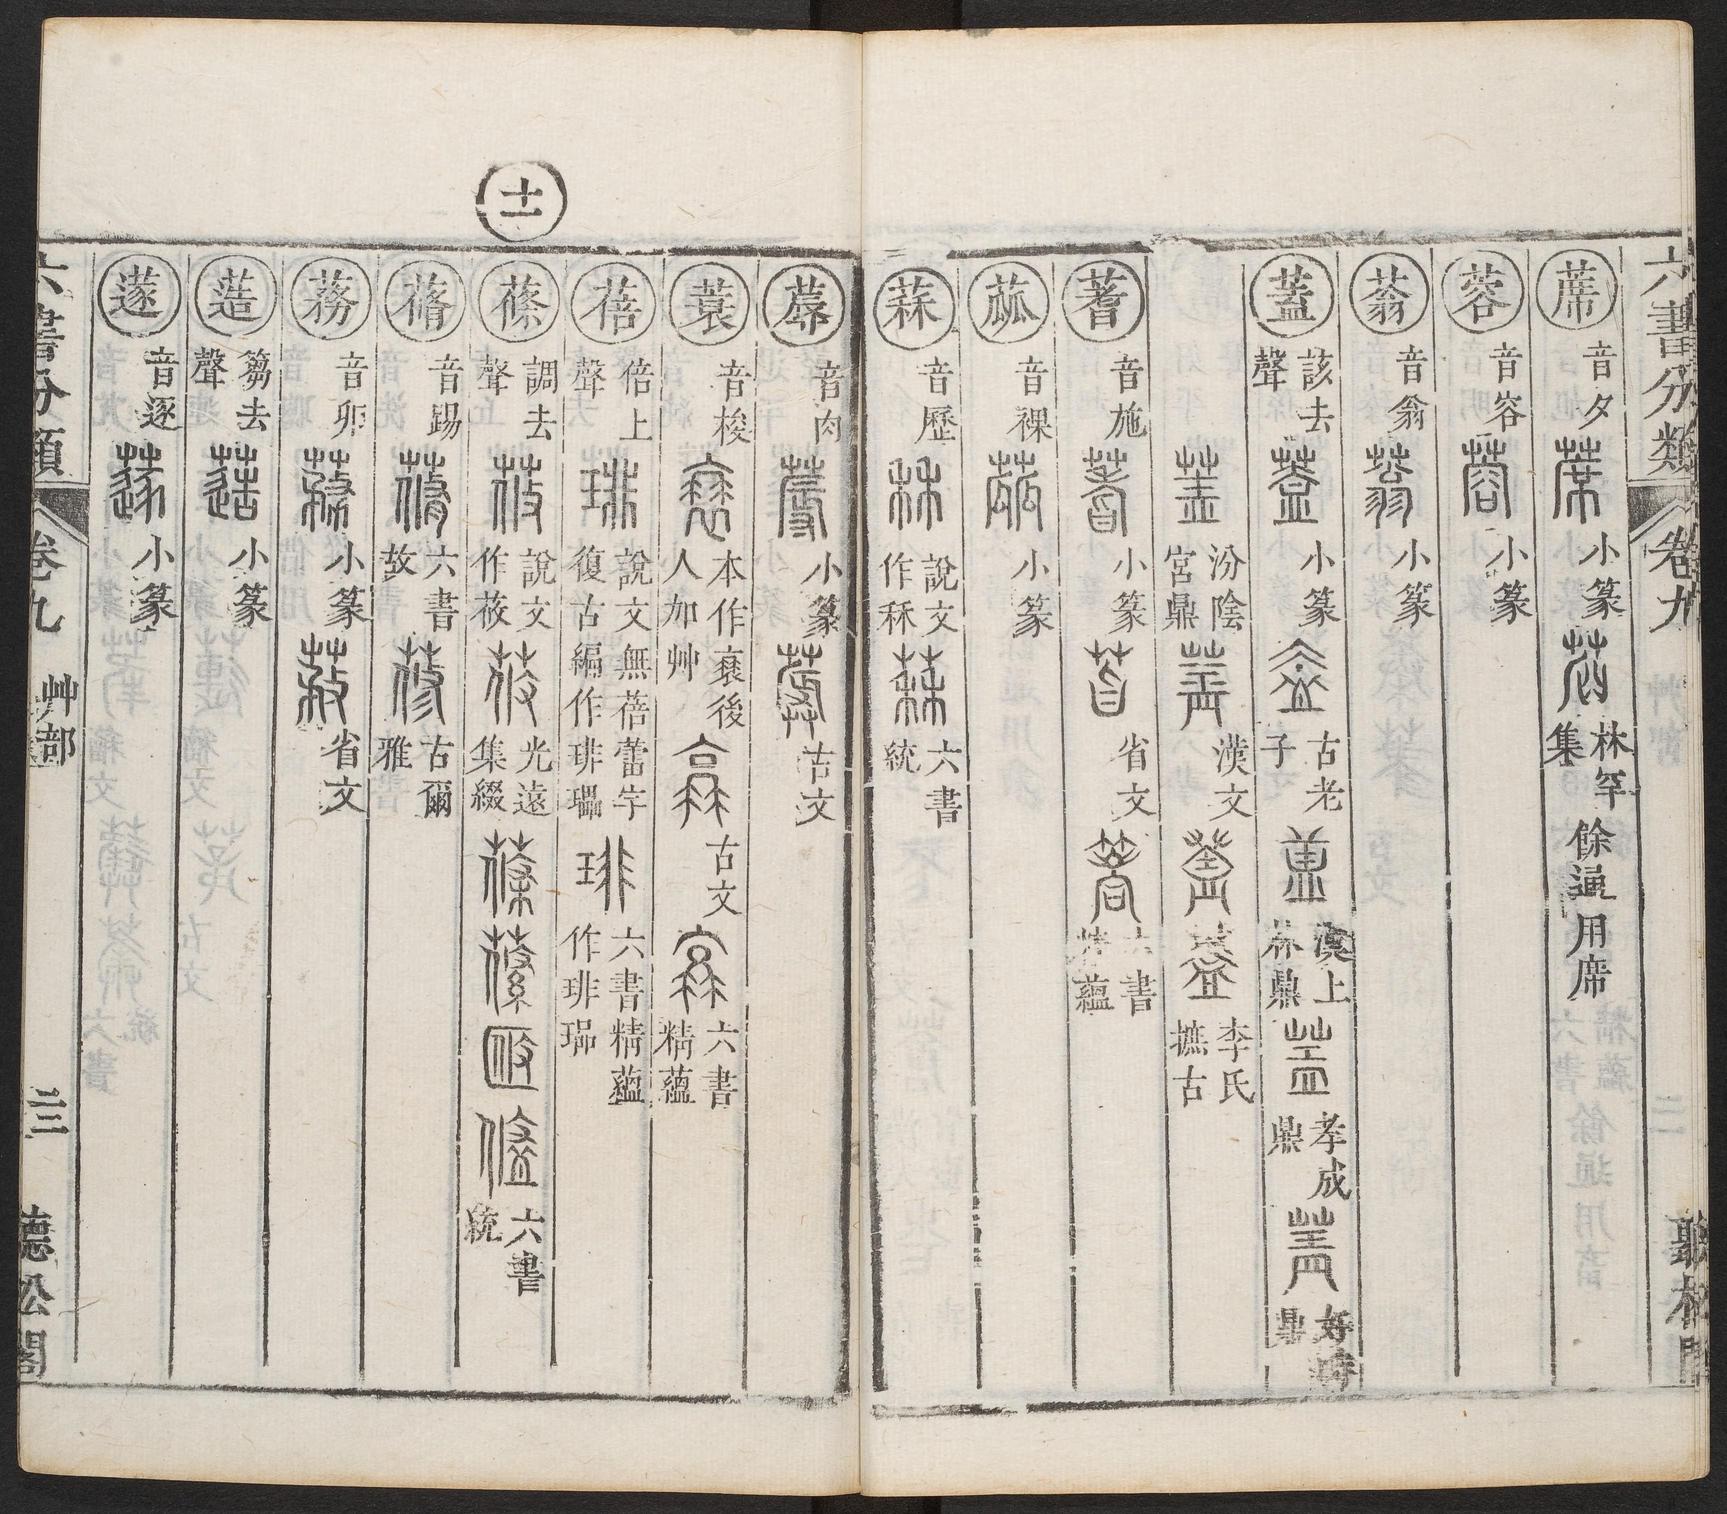 六書分類 卷九
蓆 音夕 小篆 林罕集 餘通用席
蓉 音容 小篆
蓊 音翁 小篆
蓋 該去聲 小篆 古老子 漢上林鼎 孝成鼎 好畤鼎
汾陰宮鼎 漢文 李氏摭古
蓍 音施 小篆 省文 六書精蘊
蓏 音裸 小篆
蔴 音歷 說文作秝 六書統
蓐 音肉 小篆 古文
蓑 音梭 本作衰後人加艸 古文 六書精蘊
十一
蓓 倍上聲 說文無蓓蕾字復古編作琲瓃 六書精蘊作琲
蓧 調去聲 說文作莜 光遠集綴 六書統
蓨 音踢 六書故 古爾雅
蓩 音卯 小篆 省文
簉 芻去聲 小篆
蓫 音逐 小篆
六書分類 卷九 艸部 二三 聽松閣